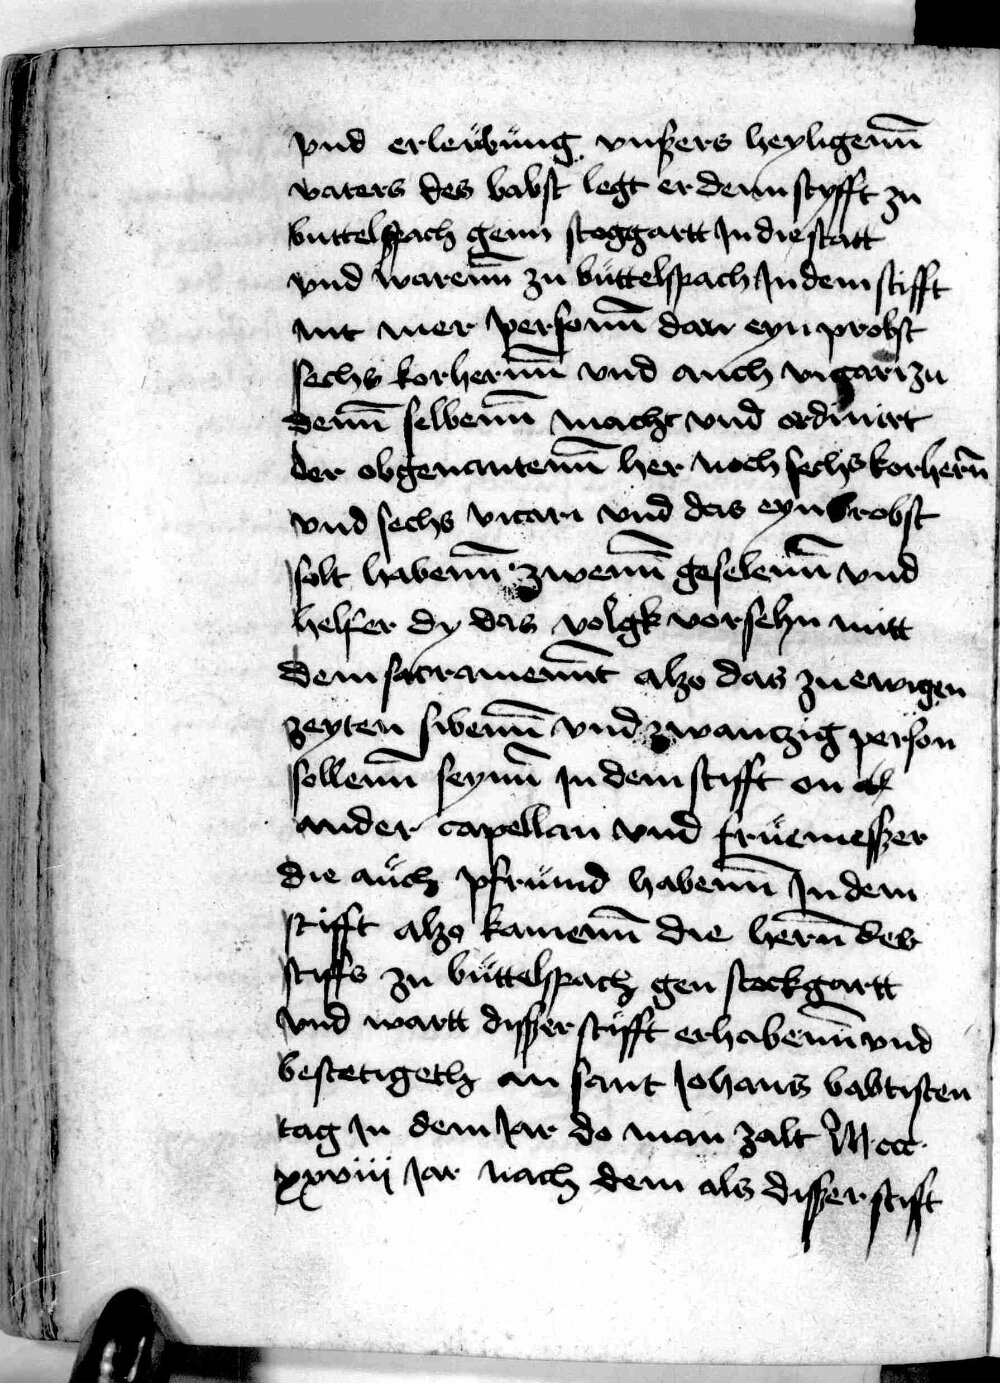 vnd erleübüng vnßers heyligenn̄
vaters des babst legt er denn styfft zu
buttelspach genn stoggartt In die statt
vnd warenn̄ zu büttelspach In dem stifft
nit mer personn̄ dan eyn probst
sechs korhernn̄ vnd auch vigari zu
denn̄ selbenn̄ macht vnd ordinirt
der obgenantenn̄ her noch sechs korhern̄
vnd sechs vicari vnd das eyn brobst
solt habenn̄ zwenn̄ geselenn̄ vnd
helfer dy das volgk vorsehn mitt
dem sacramennt̄ alzo das zu ewigen
zeyten sibenn̄ vnd zwanczig person
sollenn̄ seynn̄ In dem stifft on al
ander capellan vnd früemeßzer
die aüch pfründ habenn̄ In dem
stifft alzo kamenn̄ die hern̄ des
stiffs zu büttelspach gen stockgartt
vnd wartt disßer stifft erhabenn̄ vnd
bestetigeth an sant Johans babtisten
tag In dem Iar do man zalt M ccc
xxviii Iar nach dem als disßer stifft